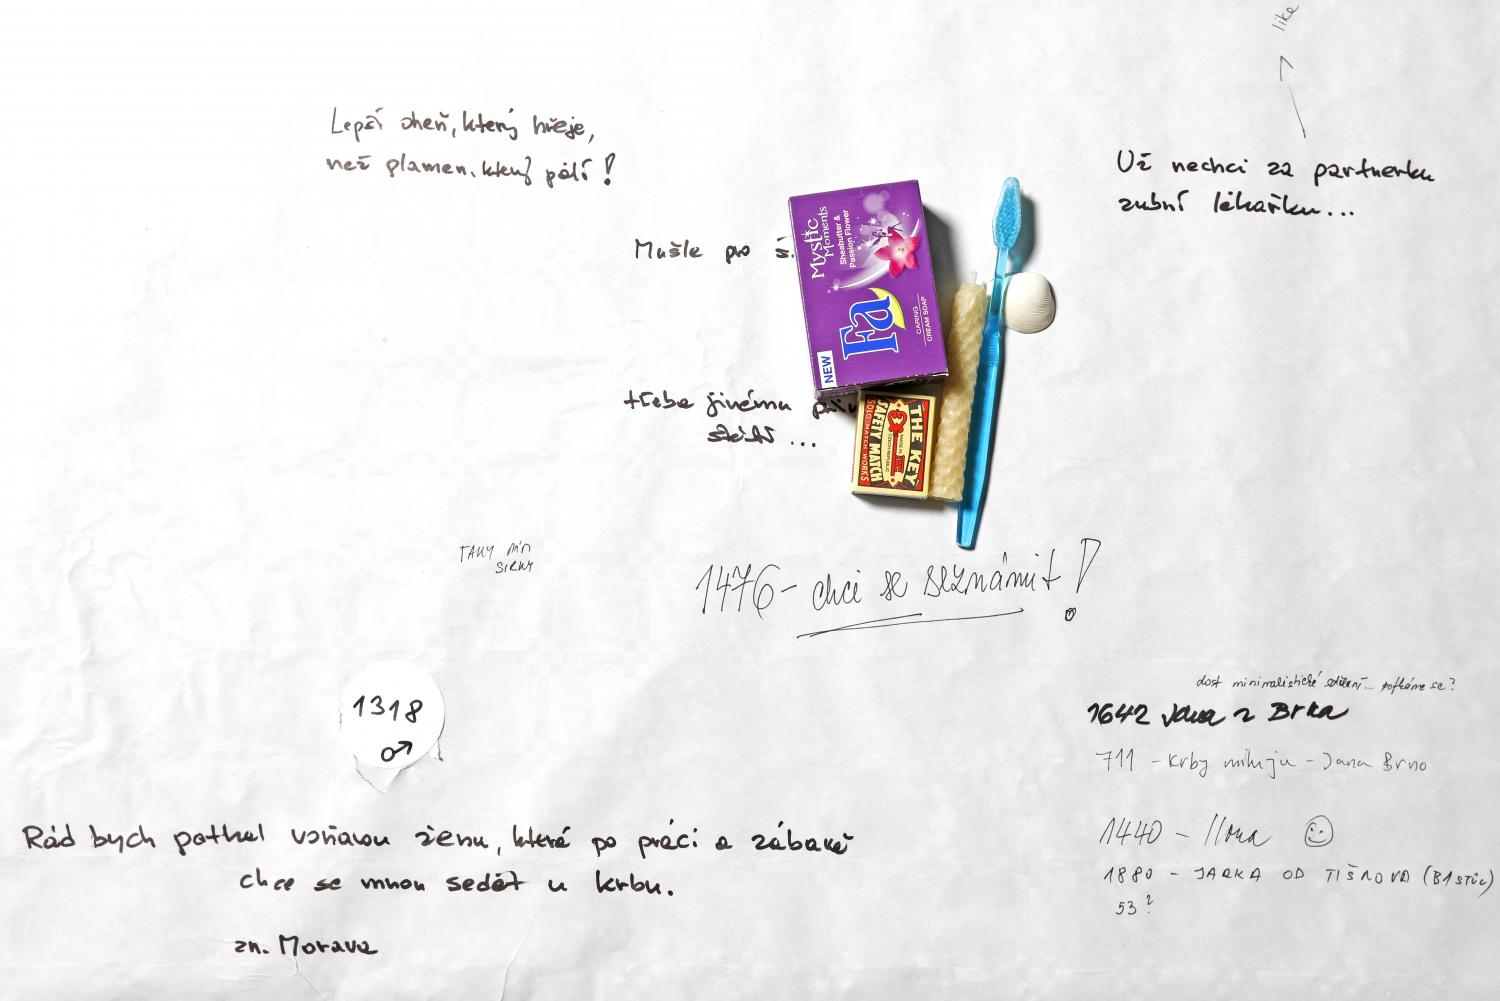 like
Lepší oheň, který hřeje,
než plamen, který pálí!
Už nechci za partnerku
zubní lékařku...
Mušle pro š
Mystic
Moments
Sheabutter &
Passion Flower
Fa
CARING
CREAM SOAP
NEW
třeba jinému
...
THE KEY
MADE IN
CZECH REPUBLIC
SAFETY MATCH
SOLO MATCH WORKS
TAKY MÍN
SIRKY
1476 - chci se seznámit!
1318
♂
dost minimalistické sdělení... potkáme se?
1642 Jana z Brna
711 - krby miluju - Jana Brno
1440 - Ilona ☺
1880 - JARKA OD TIŠNOVA (B1STŮC)
53?
Rád bych potkal voňavou ženu, která po práci a zábavě
chce se mnou sedět u krbu.
zn. Morava